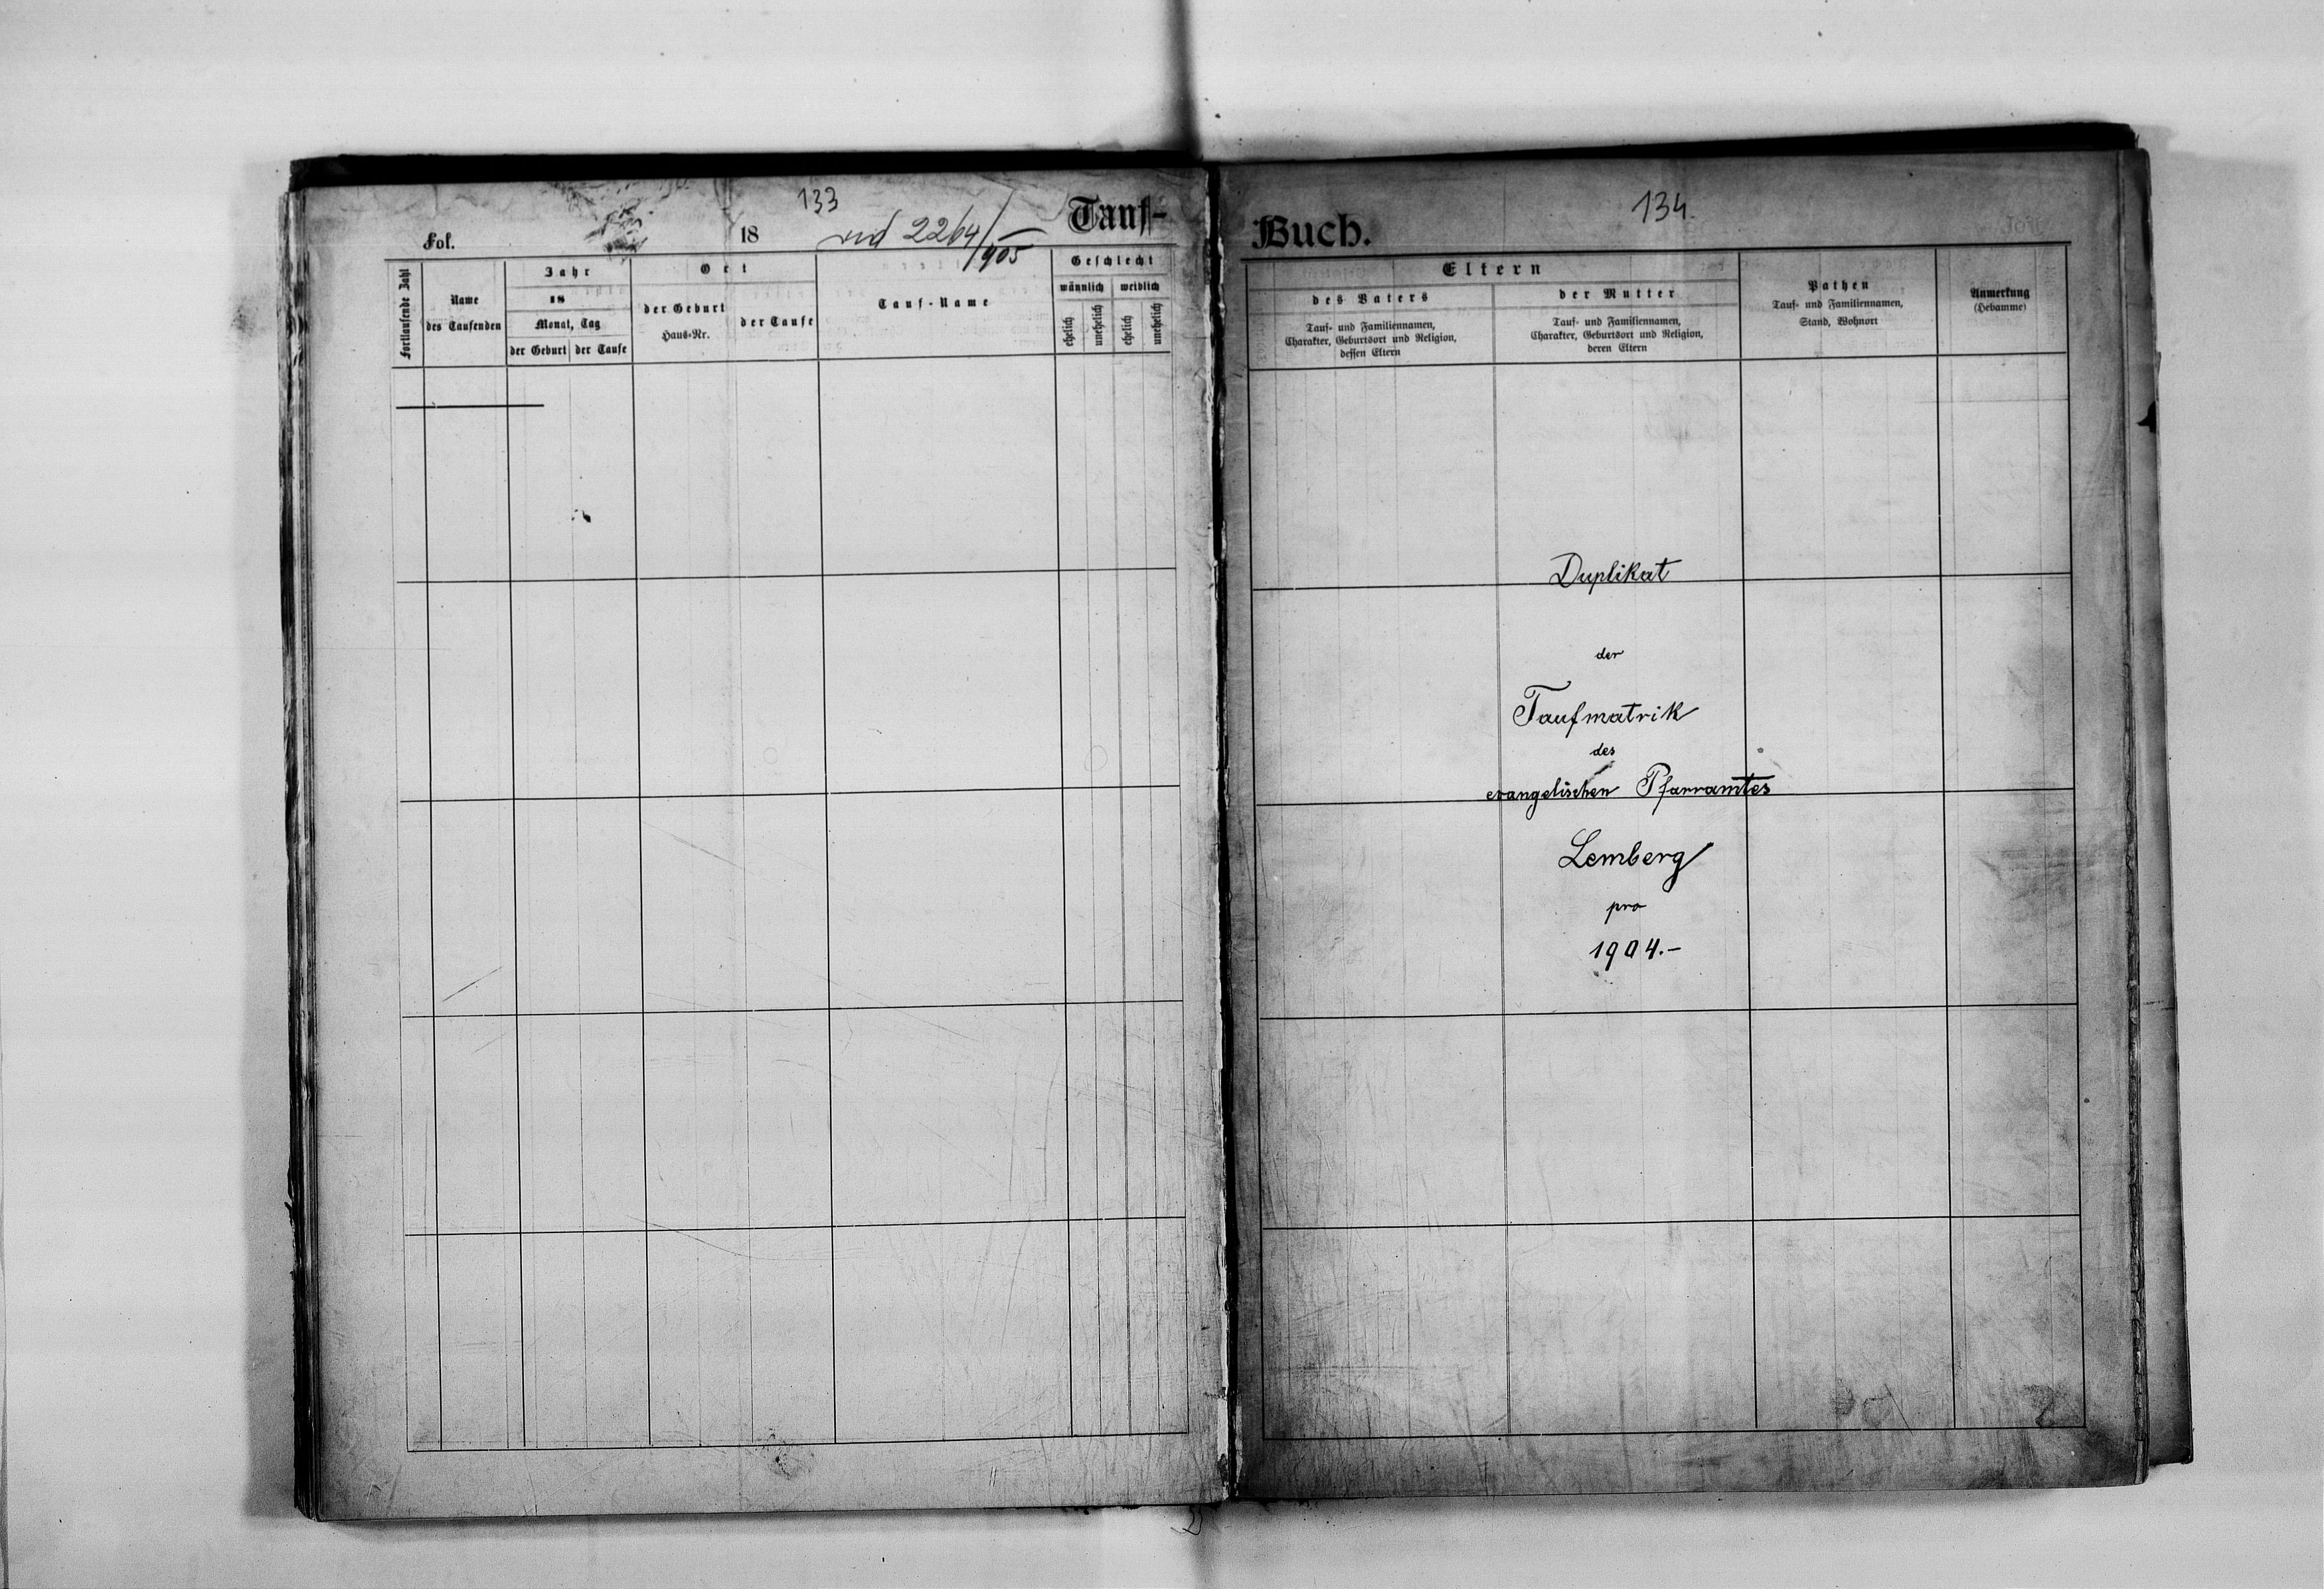 133
Fol. 18 2264/905 Tauf-
Fortlaufende Zahl
Name
des Taufenden
Jahr
18
Monat, Tag
der Geburt der Taufe
Ort
der Geburt
Haus-Nr.
der Taufe
Tauf-Name
Geschlecht
männlich weiblich
ehelich unehelich ehelich unehelich
134.
Buch.
Eltern
des Vaters
Tauf- und Familiennamen,
Charakter, Geburtsort und Religion,
dessen Eltern
der Mutter
Tauf- und Familiennamen,
Charakter, Geburtsort und Religion,
deren Eltern
Pathen
Tauf- und Familiennamen,
Stand, Wohnort
Anmerkung
(Hebamme)
Duplikat
der
Taufmatrik
des
evangelischen Pfarramtes
Lemberg
pro
1904.-